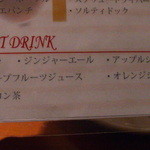 エバンチ ・ソルティドック
T DRINK
・ジンジャーエール ・アップル
プフルーツジュース ・オレンジ
ン茶